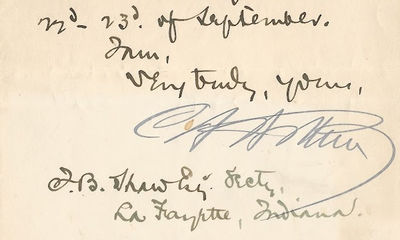 22d- 23d. of September.
I am,
Very truly, yours,
F. B. Shaw Esq. Secty,
La Fayette, Indiana.